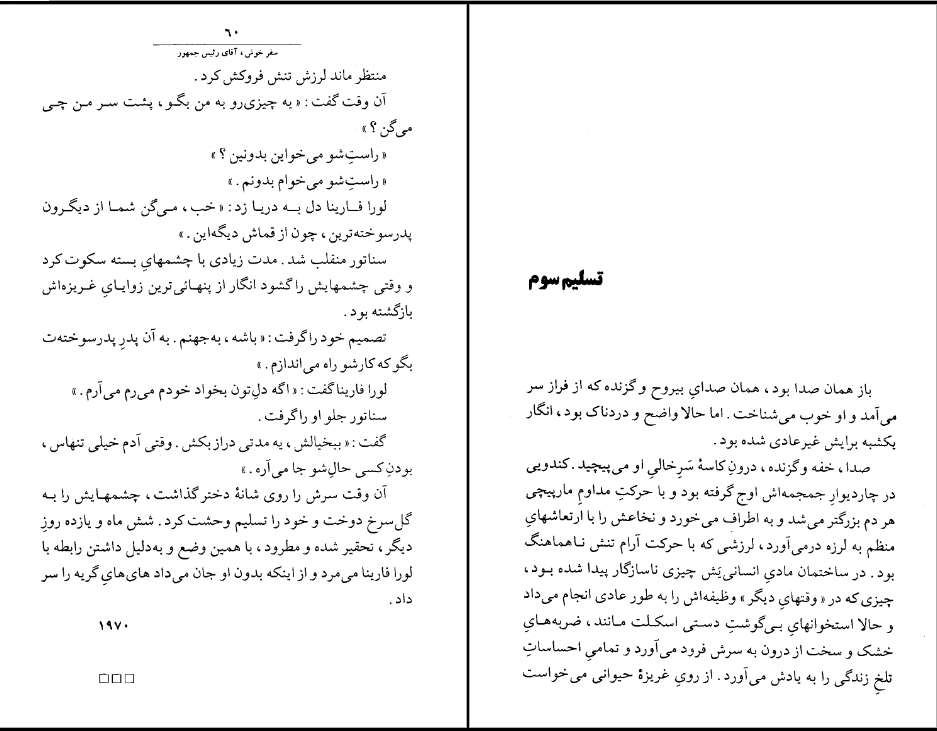 ۶۰
سفر خوش، آقای رئیس جمهور
منتظر ماند لرزش تنش فروکش کرد.
آن وقت گفت: «یه چیزی‌رو به من بگو، پشت سر من چی
می‌گن؟»
«راستِ‌شو می‌خواین بدونین؟»
«راستِ‌شو می‌خوام بدونم.»
لورا فارینا دل به دریا زد: «خب، می‌گن شما از دیگرون
پدرسوخته‌ترین، چون از قماش دیگه‌این.»
سناتور منقلب شد. مدت زیادی با چشمهایِ بسته سکوت کرد
و وقتی چشمهایش را گشود انگار از پنهانی‌ترین زوایایِ غریزه‌اش
بازگشته بود.
تصمیم خود را گرفت: «باشه، به‌جهنم. به آن پدرِ پدرسوخته‌ت
بگو که کارشو راه می‌اندازم.»
لورا فارینا گفت: «اگه دلِ‌تون بخواد خودم می‌رم می‌آرم.»
سناتور جلو او را گرفت.
گفت: «بیخیالش، یه مدتی دراز بکش. وقتی آدم خیلی تنهاس،
بودنِ کسی حالِ‌شو جا می‌آره.»
آن وقت سرش را روی شانهٔ دختر گذاشت، چشمهایش را به
گل‌سرخ دوخت و خود را تسلیم وحشت کرد. شش ماه و یازده روزِ
دیگر، تحقیر شده و مطرود، با همین وضع و به‌دلیل داشتن رابطه با
لورا فارینا می‌مرد و از اینکه بدون او جان می‌داد های‌هایِ گریه را سر
داد.
۱۹۷۰
□□□
تسلیم سوم
باز همان صدا بود، همان صدایِ بیروح و گزنده که از فراز سر
می‌آمد و او خوب می‌شناخت. اما حالا واضح و دردناک بود، انگار
یکشبه برایش غیرعادی شده بود.
صدا، خفه و گزنده، درونِ کاسهٔ سَرِ خالیِ او می‌پیچید. کندویی
در چاردیوارِ جمجمه‌اش اوج گرفته بود و با حرکتِ مداومِ مارپیچی
هر دم بزرگتر می‌شد و به اطراف می‌خورد و نخاعش را با ارتعاشهایِ
منظم به لرزه درمی‌آورد، لرزشی که با حرکت آرام تنش ناهماهنگ
بود. در ساختمان مادیِ انسانی‌یَش چیزی ناسازگار پیدا شده بود،
چیزی که در «وقتهایِ دیگر» وظیفه‌اش را به طور عادی انجام می‌داد
و حالا استخوانهایِ بی‌گوشتِ دستی اسکلت مانند، ضربه‌هایِ
خشک و سخت از درون به سرش فرود می‌آورد و تمامیِ احساساتِ
تلخِ زندگی را به یادش می‌آورد. از رویِ غریزهٔ حیوانی می‌خواست